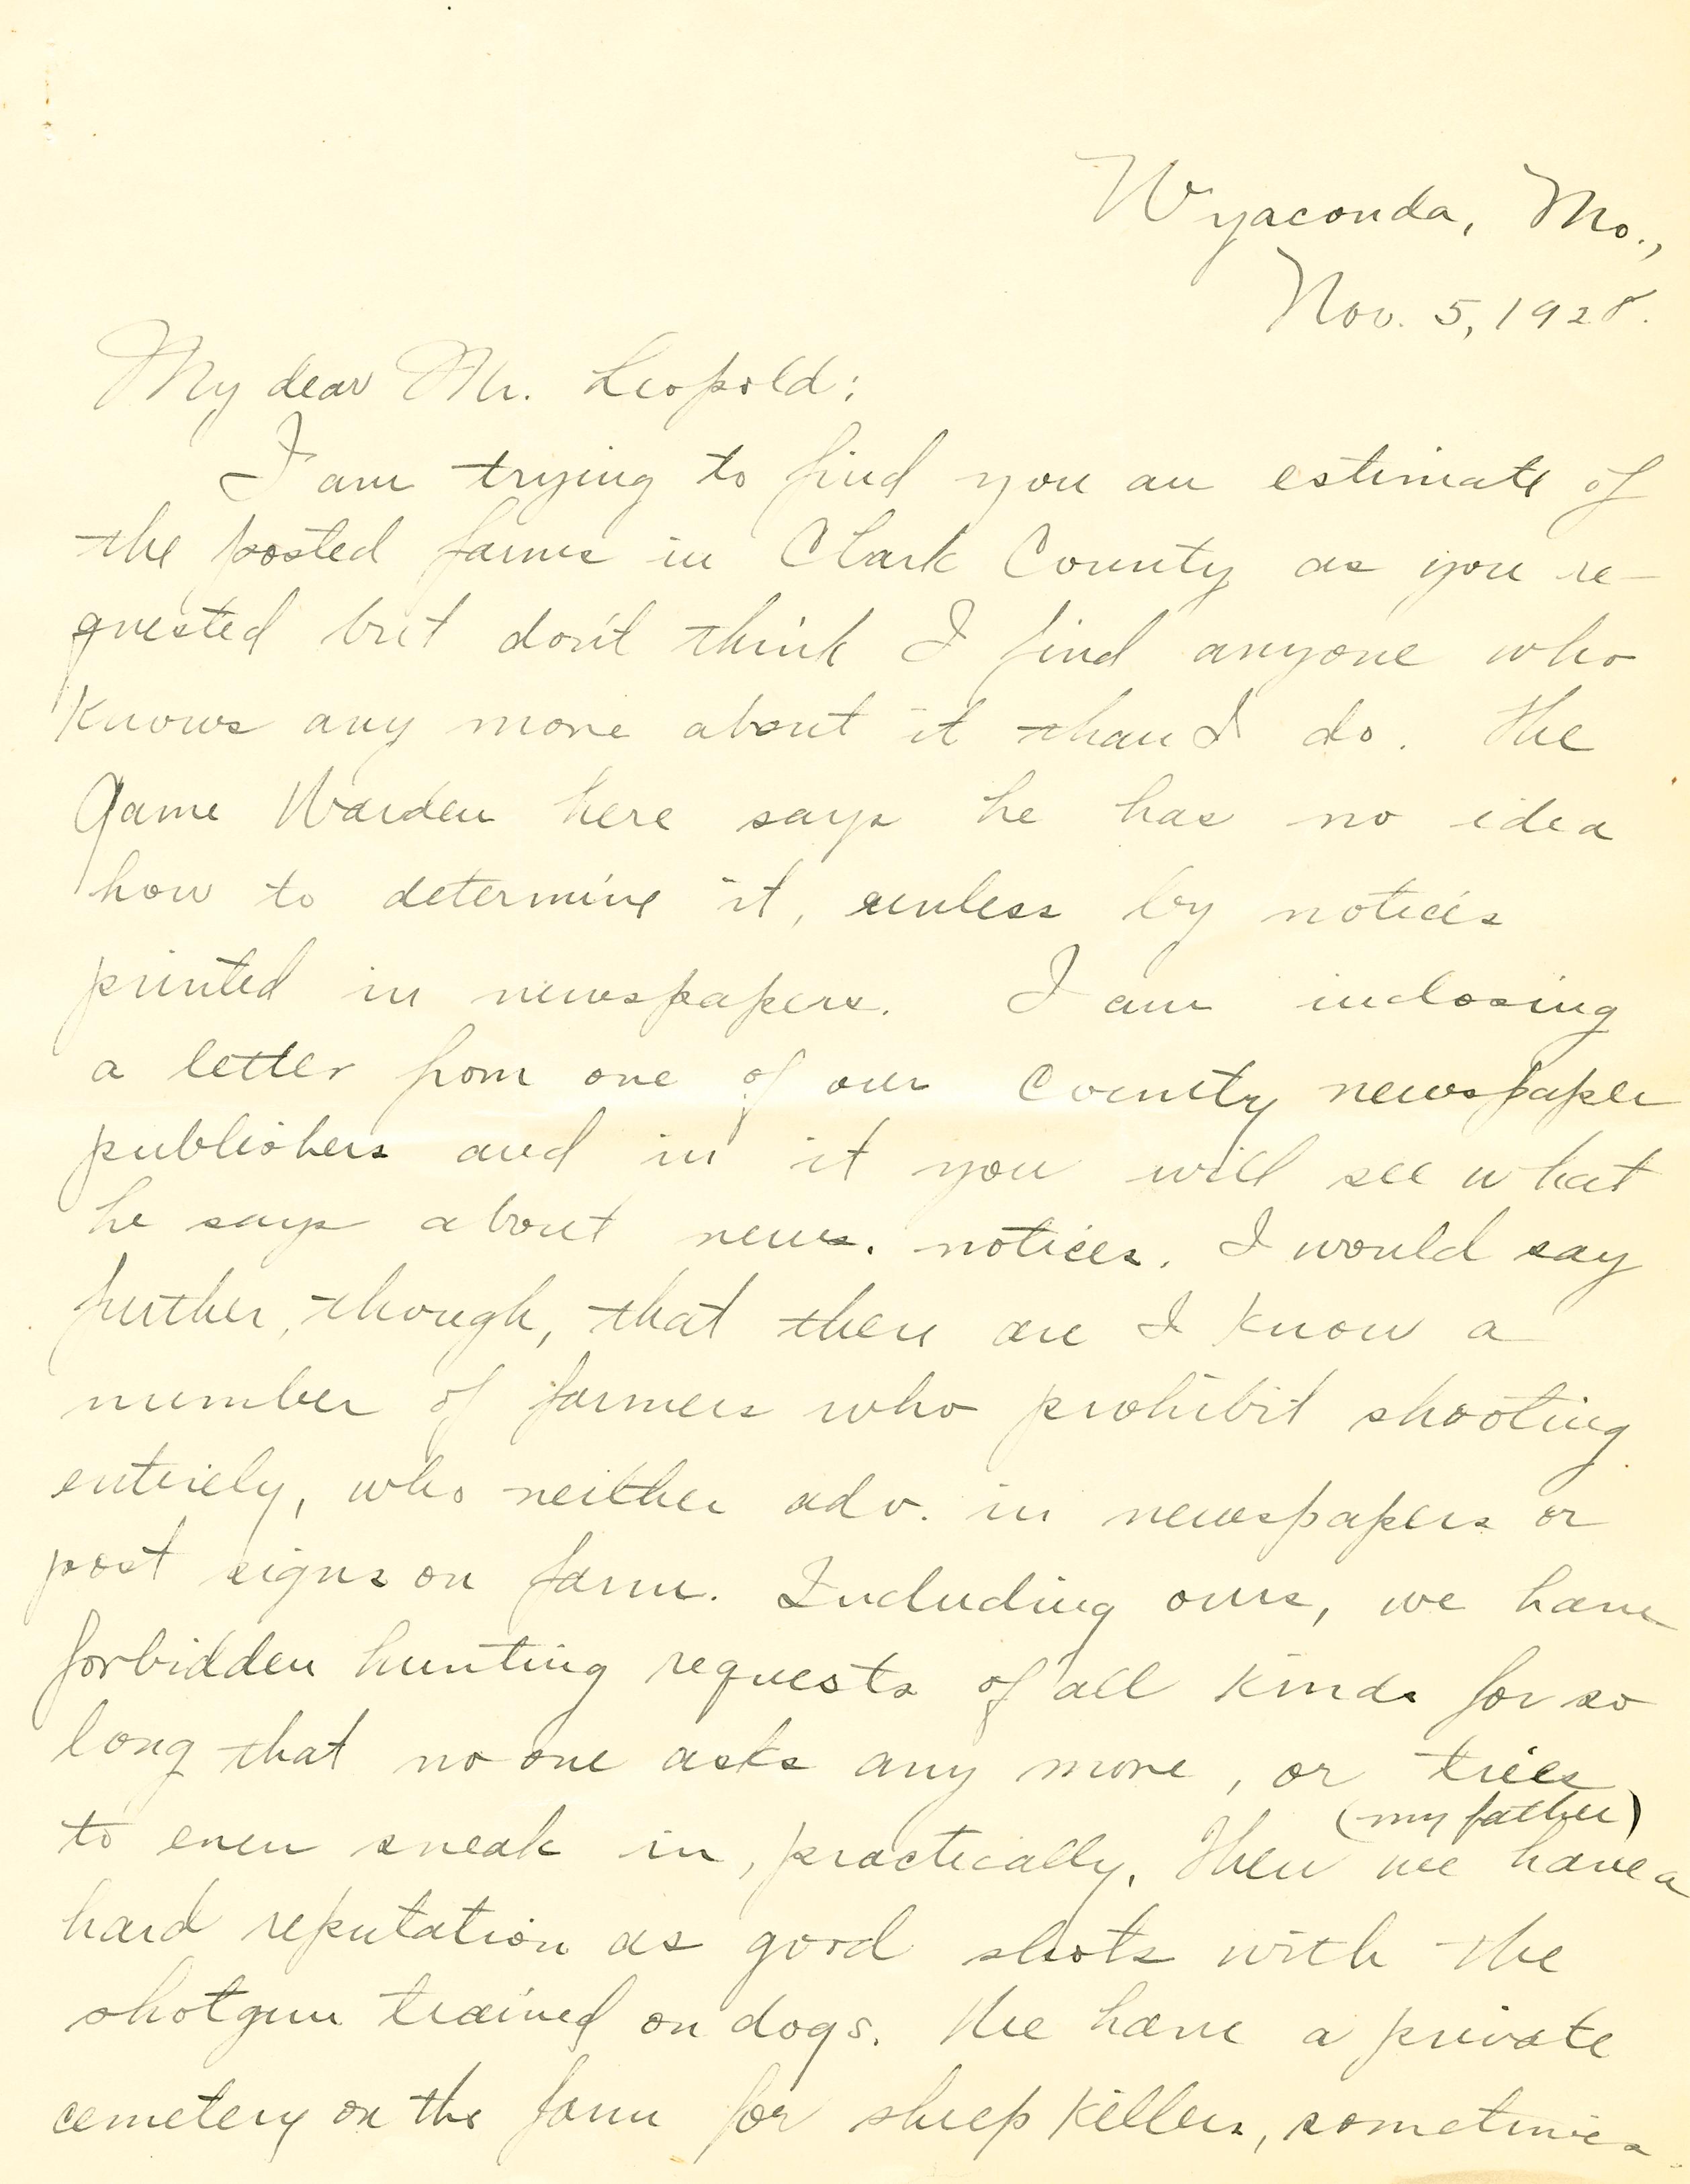 Wyaconda, Mo.,
Nov. 5, 1928.
My dear Mr. Leopold:
I am trying to find you an estimate of
the posted farms in Clark County as you re-
quested but don't think I find anyone who
knows any more about it than I do. The
Game Warden here says he has no idea
how to determine it, unless by notices
printed in newspapers. I am inclosing
a letter from one of our County newspaper
publishers and in it you will see what
he says about news. notices. I would say
further, though, that there are I know a
number of farmers who prohibit shooting
entirely, who neither adv. in newspapers or
post signs on farm. Including ours, we have
forbidden hunting requests of all kinds for so
long that no one asks any more, or tries
(my father)
to even sneak in, practically. Then we have a
hard reputation as good shots with the
shotgun trained on dogs. We have a private
cemetery on the farm for sheep killers, sometimes